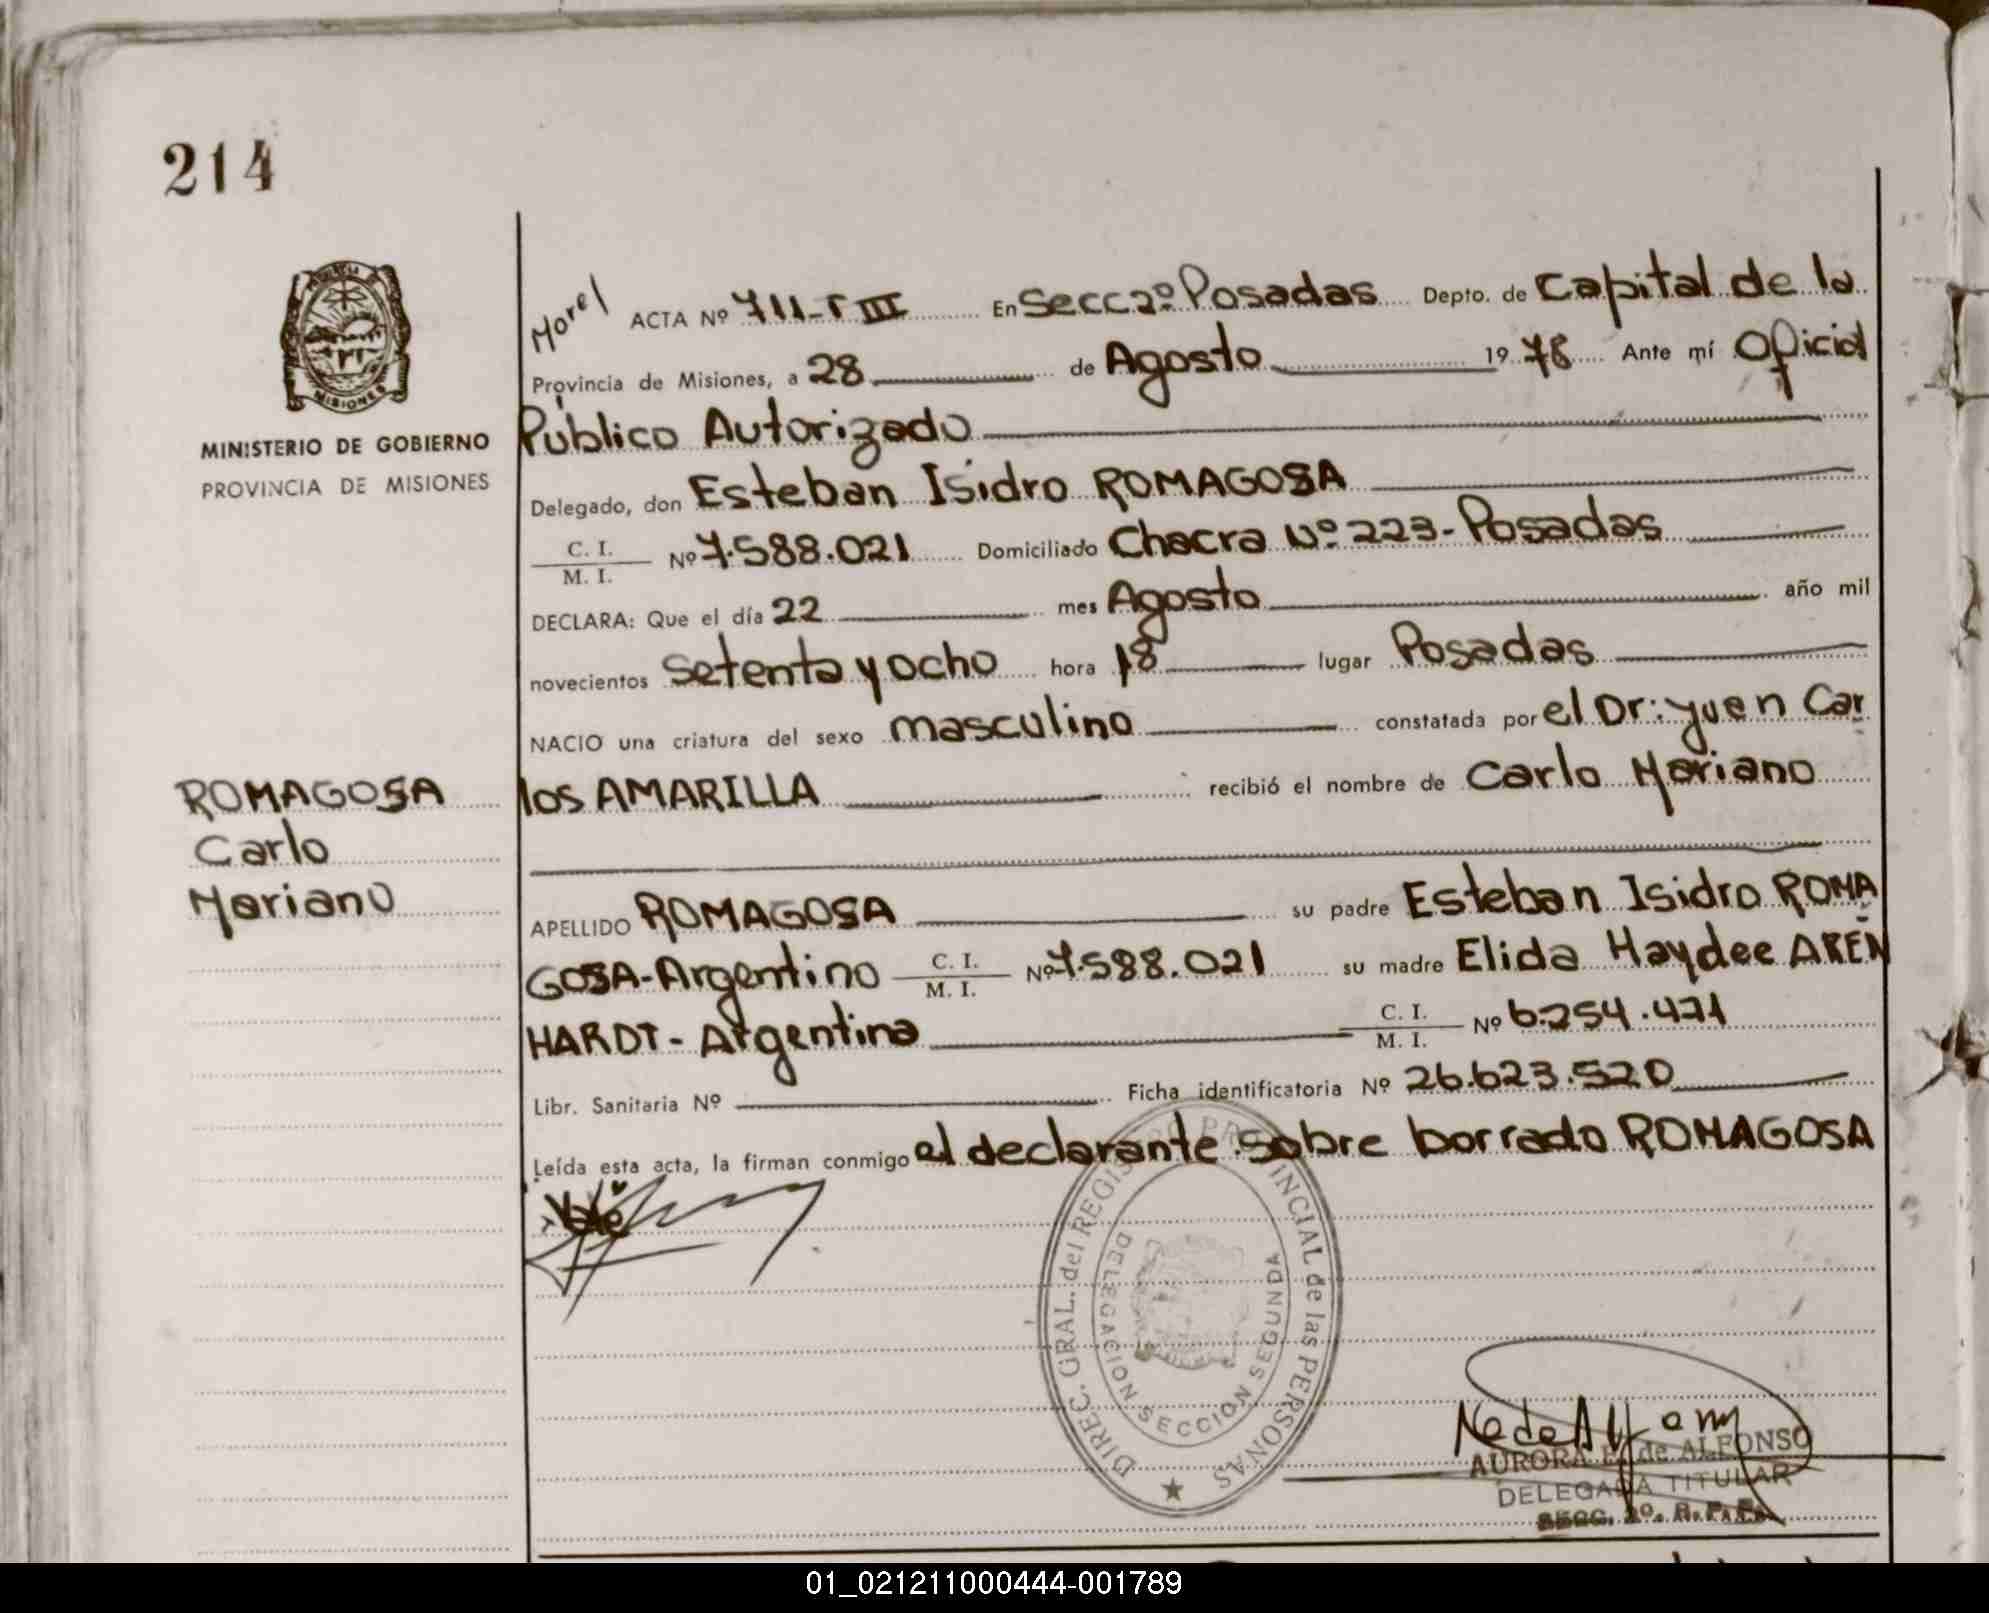 214
MISIONES
MINISTERIO DE GOBIERNO
PROVINCIA DE MISIONES
Morel
ACTA Nº 711-T III En Secc 2º Posadas Depto. de Capital de la
Provincia de Misiones, a 28 de Agosto 19 78 Ante mí Oficial
Público Autorizado
Delegado, don Esteban Isidro ROMAGOSA
C. I.
M. I. Nº 7.588.021 Domiciliado Chacra Nº 223-Posadas
DECLARA: Que el día 22 mes Agosto año mil
novecientos setenta y ocho hora 18 lugar Posadas
NACIO una criatura del sexo masculino constatada por el Dr: Yuen Car
ROMAGOSA
Carlo
Mariano
los AMARILLA recibió el nombre de Carlo Mariano
APELLIDO ROMAGOSA su padre Esteban Isidro ROMA
GOSA-Argentino C. I. M. I. Nº 7.588.021 su madre Elida Haydee AREN
HARDT- Argentina C. I. M. I. Nº 6.254.471
Libr. Sanitaria Nº Ficha identificatoria Nº 26.623.520
Leída esta acta, la firman conmigo el declarante.sobre borrado ROMAGOSA
Vale
DIREC. GRAL. del REGISTRO PROVINCIAL de las PERSONAS
DELEGACION SECCION SEGUNDA
AURORA E. de ALFONSO
DELEGADA TITULAR
SECC. 2º
01_021211000444-001789